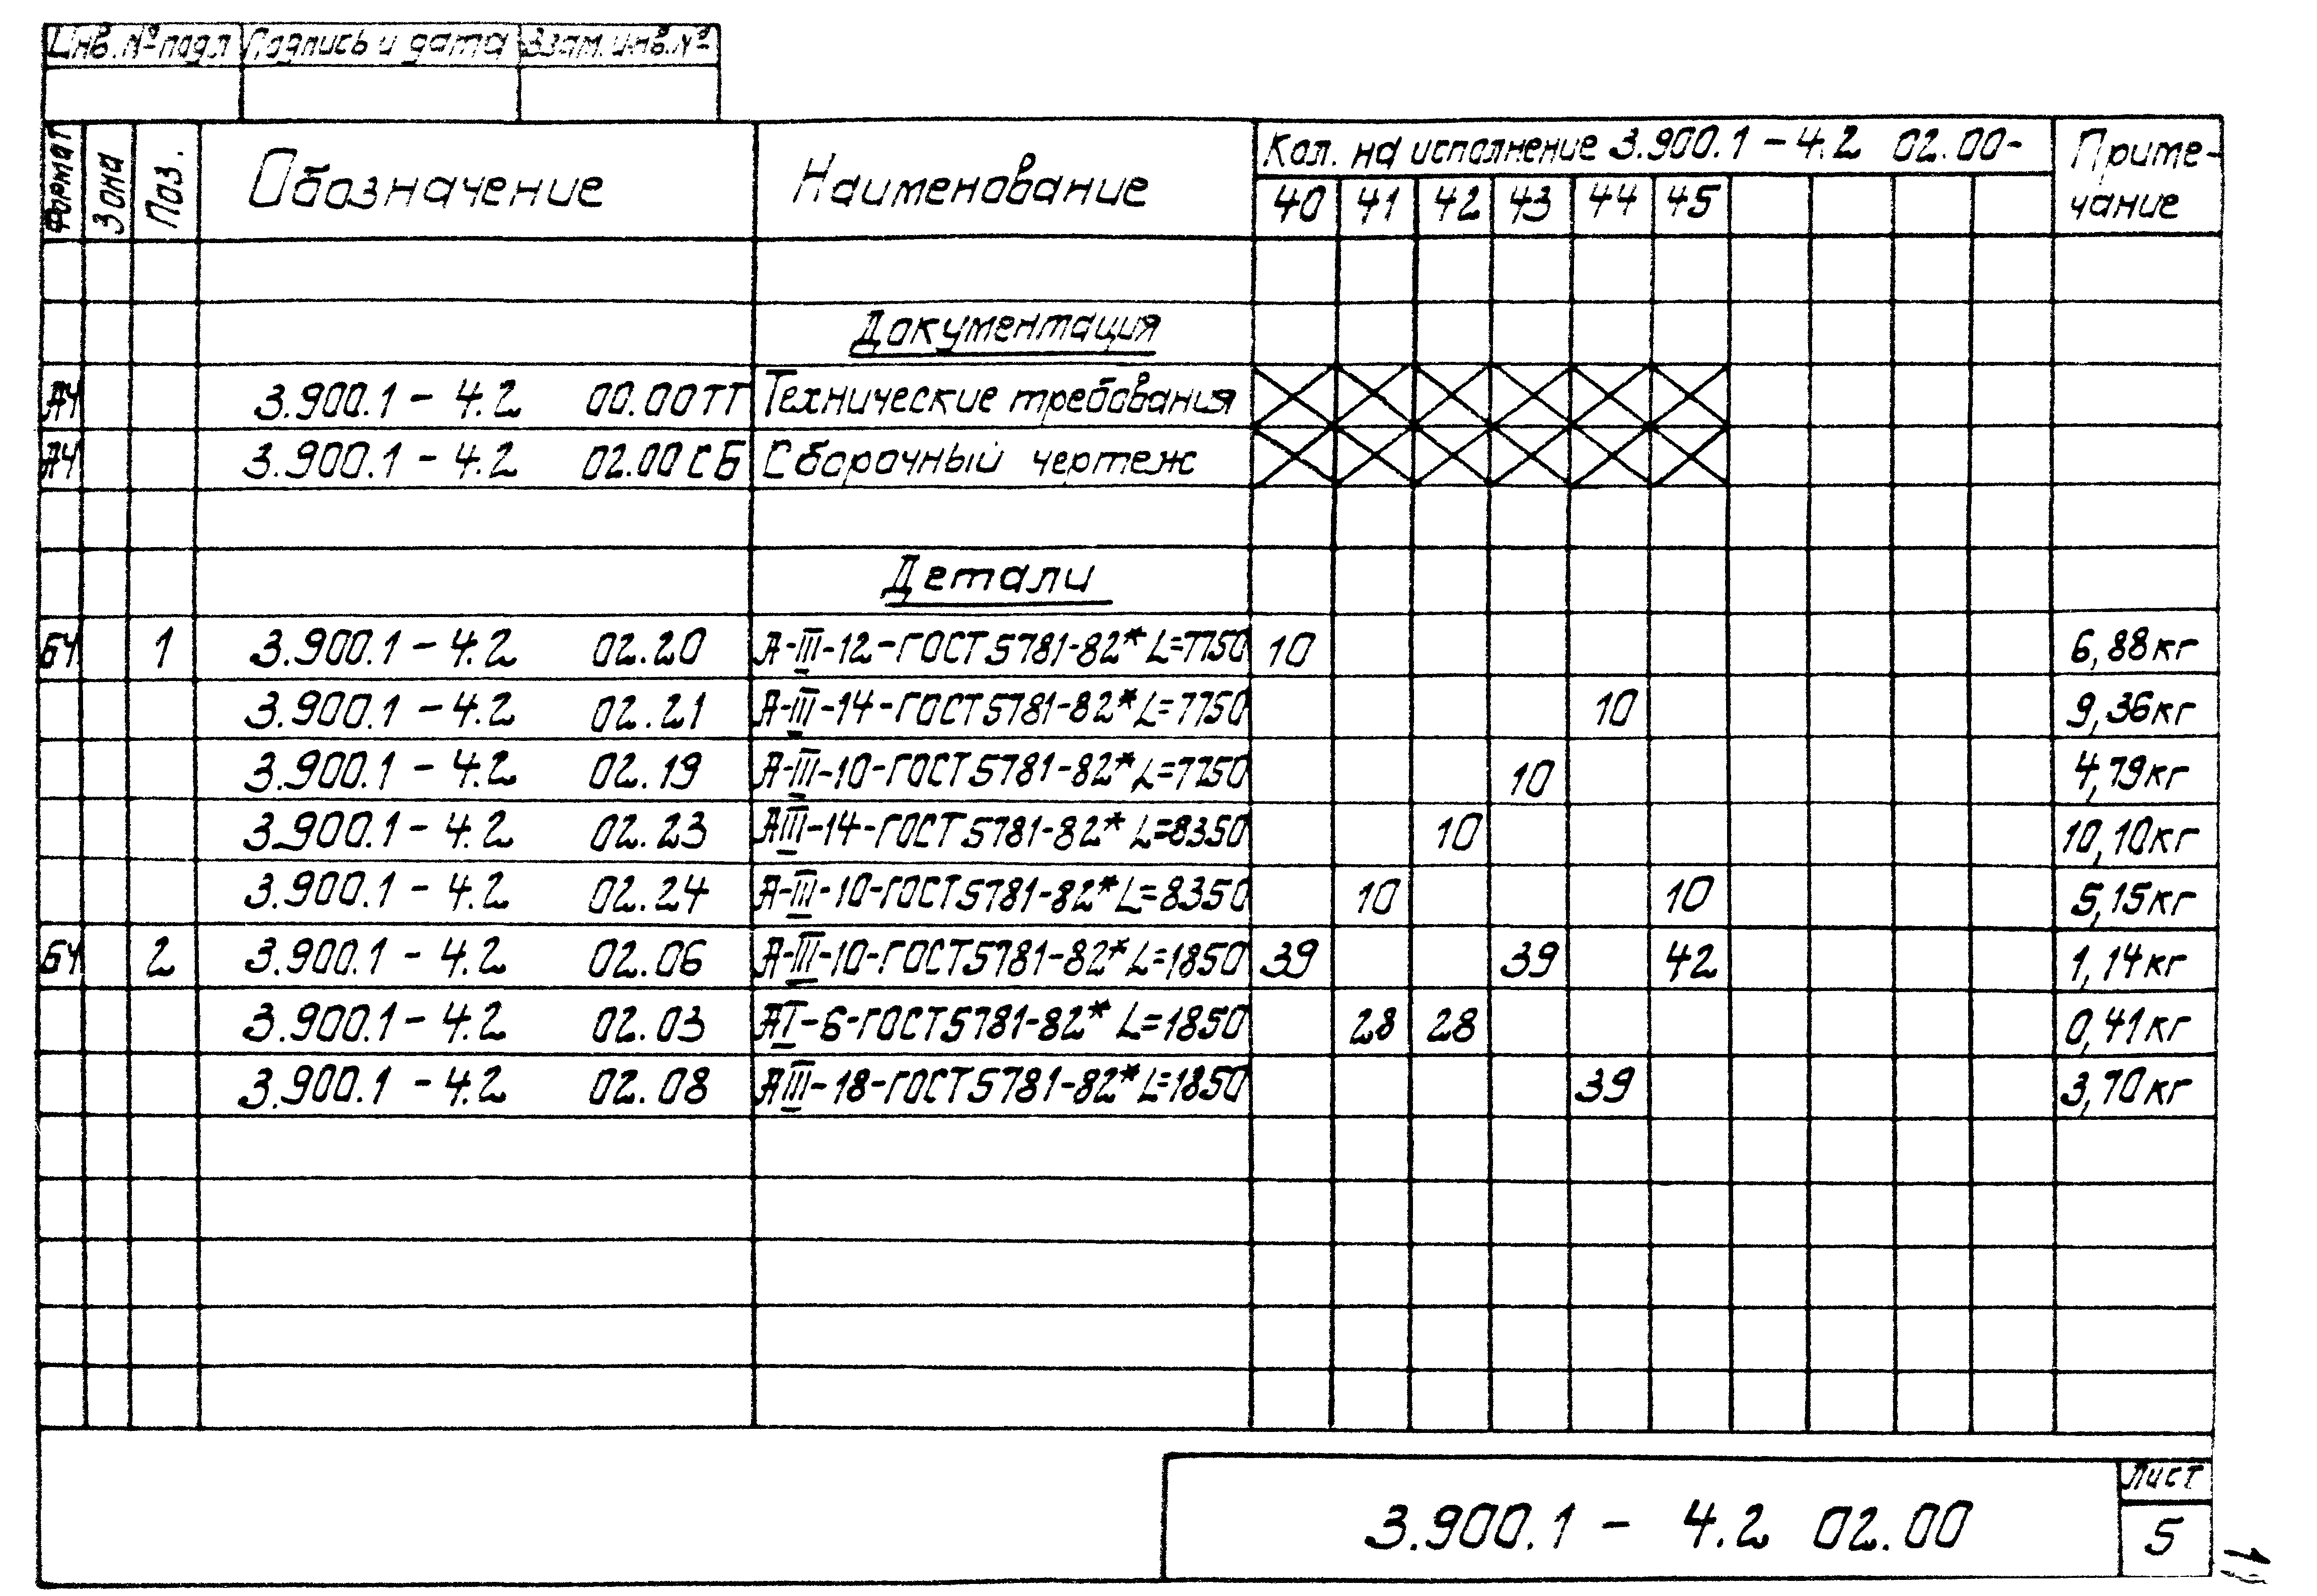 Инв. № подл Подпись и дата Взам. инв. №
Формат Зона Поз. Обозначение Наименование Кол. на исполнение 3.900.1 – 4.2 02.00- Приме-
40 41 42 43 44 45 чание
Документация
А4 3.900.1 – 4.2 00.00ТТ Технические требования
А4 3.900.1 – 4.2 02.00 СБ Сборочный чертеж
Детали
БЧ 1 3.900.1 – 4.2 02.20 А-III-12-ГОСТ 5781-82* L=7750 10 6,88кг
3.900.1 – 4.2 02.21 А-III-14-ГОСТ 5781-82* L=7750 10 9,36кг
3.900.1 – 4.2 02.19 А-III-10-ГОСТ 5781-82* L=7750 10 4,79кг
3.900.1 – 4.2 02.23 АIII-14-ГОСТ 5781-82* L=8350 10 10,10кг
3.900.1 – 4.2 02.24 А-III-10-ГОСТ 5781-82* L=8350 10 10 5,15кг
БЧ 2 3.900.1 – 4.2 02.06 А-III-10-ГОСТ 5781-82* L=1850 39 39 42 1,14кг
3.900.1 – 4.2 02.03 АI-6-ГОСТ 5781-82* L=1850 28 28 0,41кг
3.900.1 – 4.2 02.08 АIII-18-ГОСТ 5781-82* L=1850 39 3,70кг
3.900.1 – 4.2 02.00
Лист
5